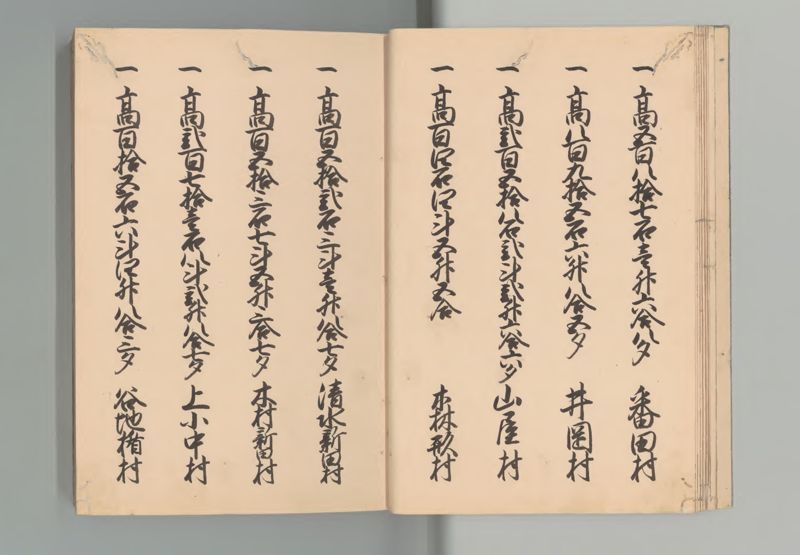 一高五百八拾七石壱斗六合八夕 番田村
一高八百九拾五石六斗八合五夕 井岡村
一高弐百五拾八石弐斗弐升六合六夕 山屋村
一高百四石四斗五升五合 本林形村
一高百五拾弐石三斗壱升八合七夕 清水新田村
一高百五拾三石七斗五升六合七夕 木村新田村
一高弐百七拾壱石八斗弐升八合七夕 上小中村
一高百拾五石六斗四升八合三夕 谷地楯村